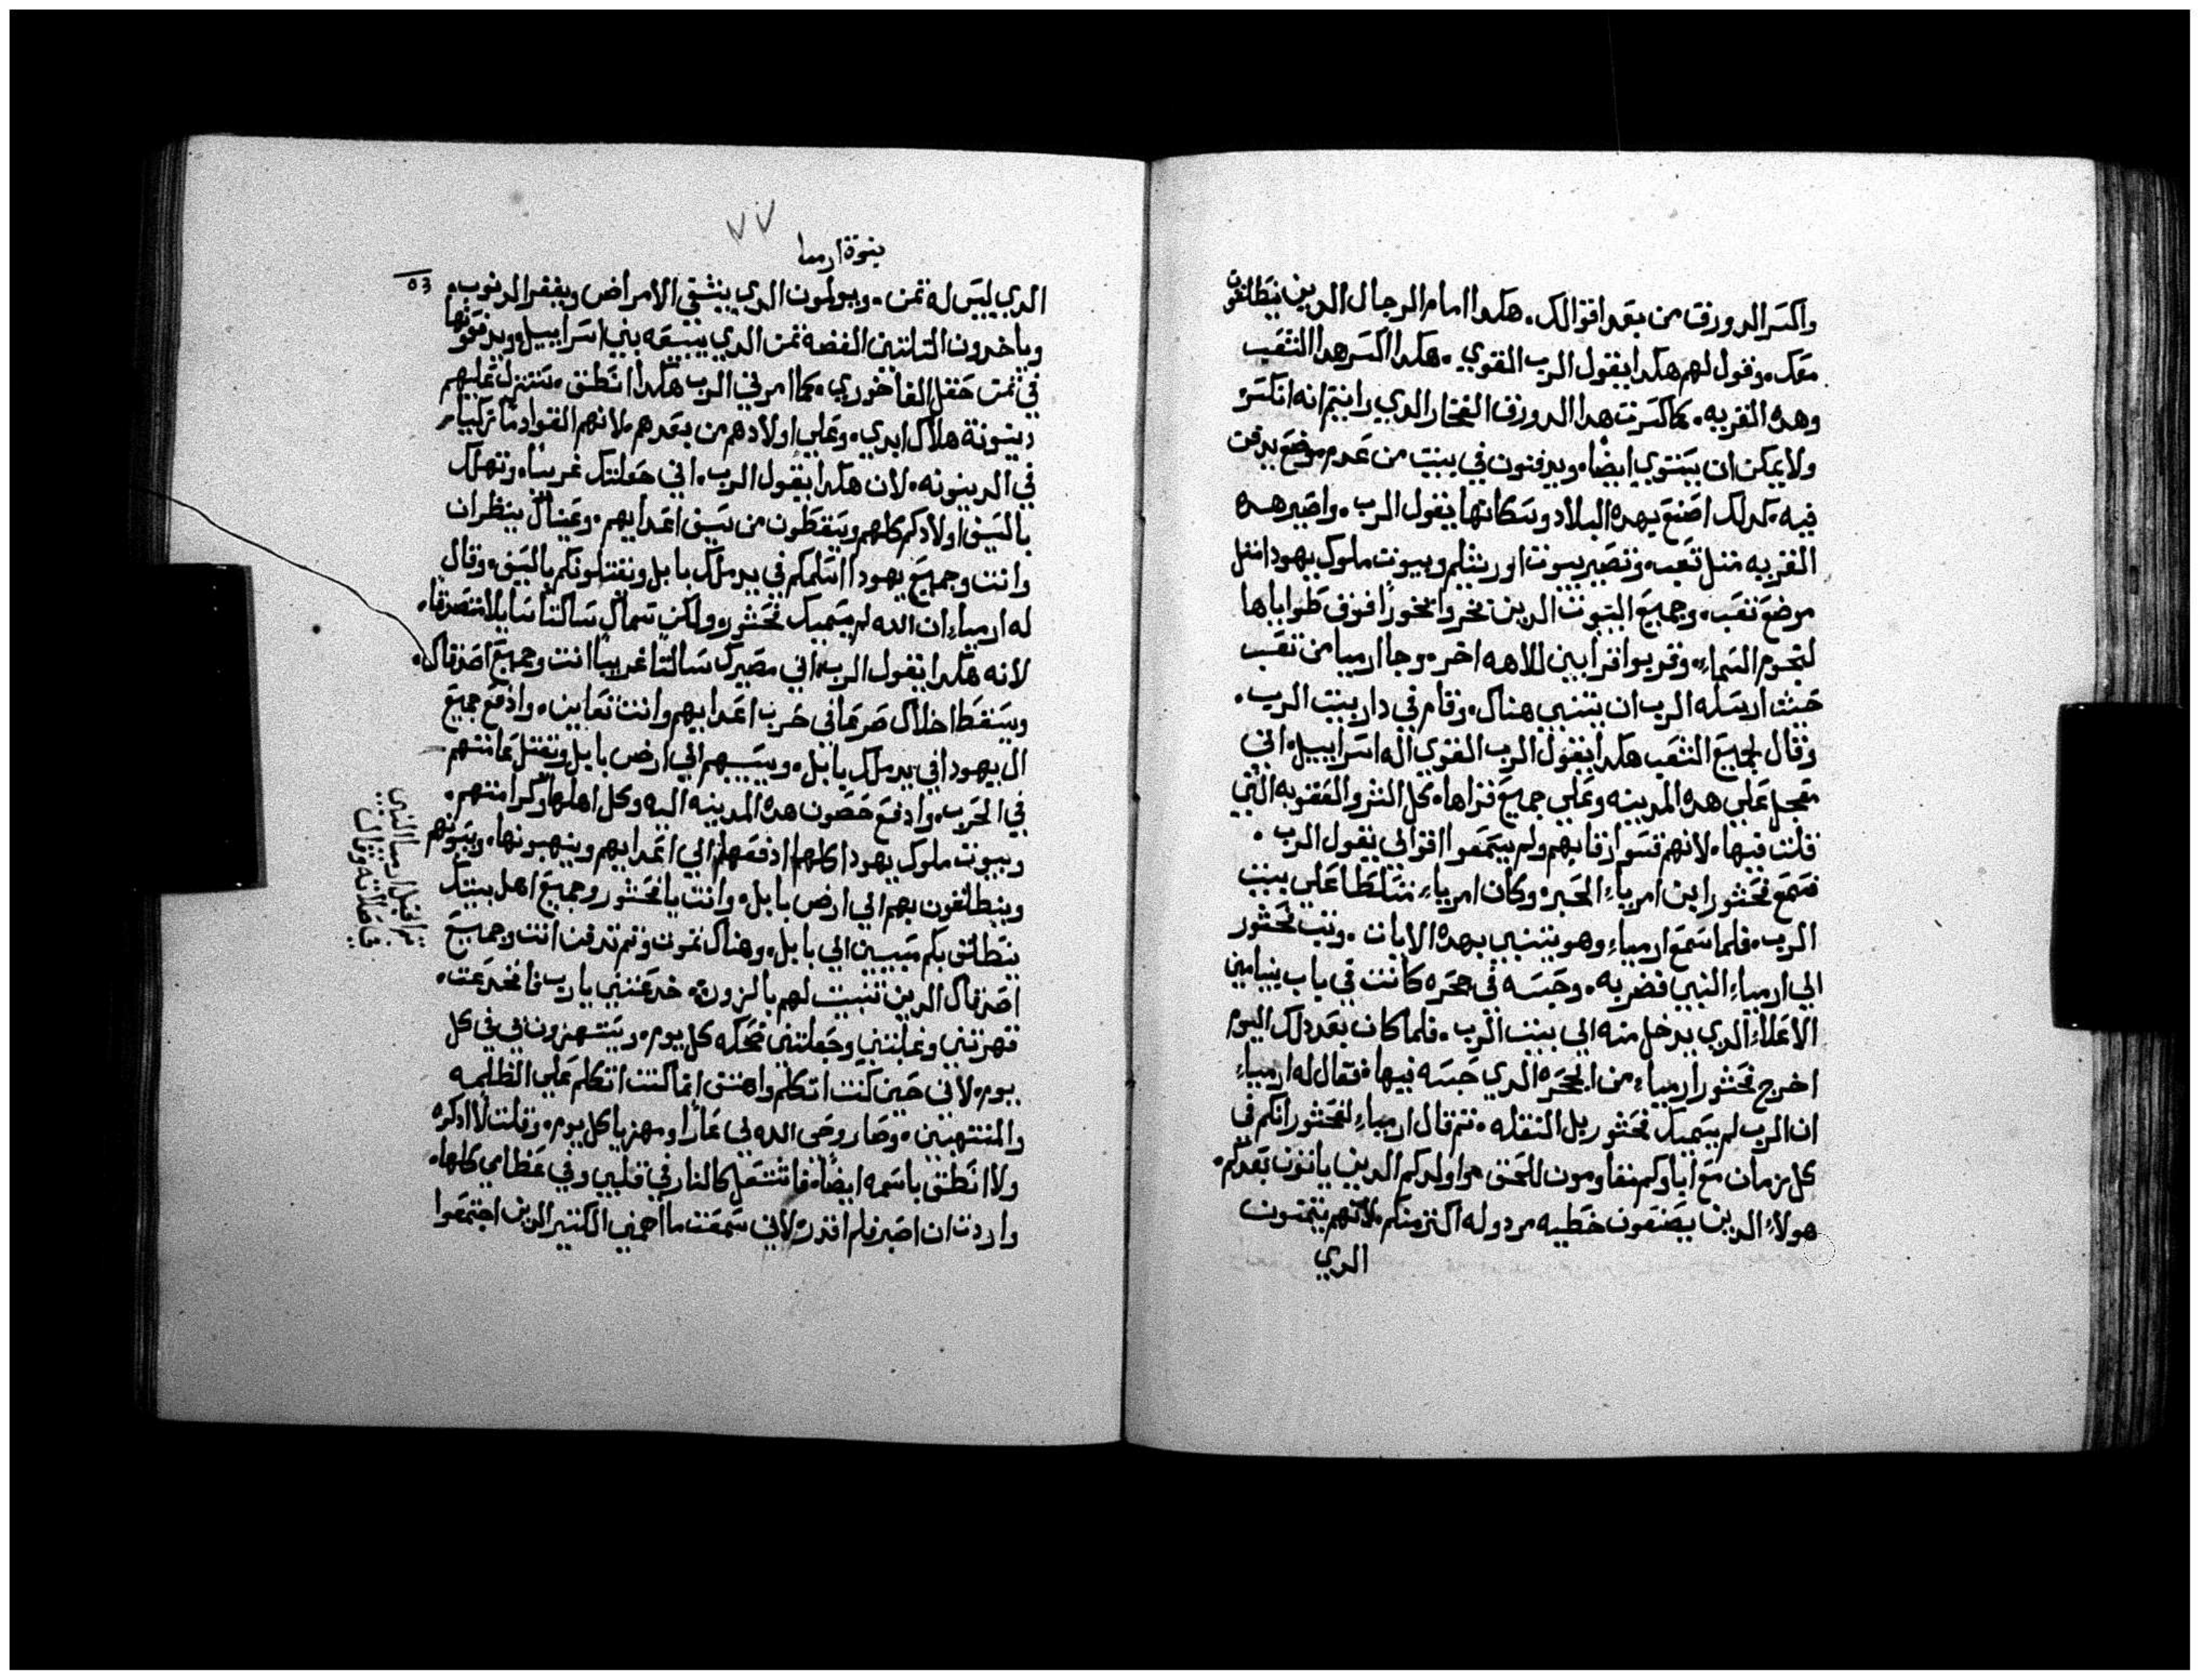 واكسر الدورق من بعد اقوالك. هكدا امام الرجال الدين ينطلقون
معك. وقول لهم هكدا يقول الرب القوي. هكدا اكسر هدا الشعب
وهده القريه. كما كسرت هدا الدورق الفخار الدي رايتم انه انكسر
ولا يمكن ان يستوي ايضا. ويدفنون في بيت من عدم موضع يدفن
فيه. كدلك اصنع بهده البلاد وسكانها يقول الرب. واصير هده
القريه متل تعبه. وتصير بيوت اورشليم وبيوت ملوك يهودا متل
موضع تعب. وجميع البيوت الدين بخروا بخورا فوق طواياها
لنجوم السماء. وقربوا قرابين للاهه اخر. وجا ارميا من تعب
حيت ارسله الرب ان يتنبي هناك. وقام في دار بيت الرب.
وقال لجميع الشعب هكدا يقول الرب القوي اله اسراييل. اني
معجل علي هده المدينه وعلي جميع قراها. كل الشر والعقوبه التي
قلت فيها. لانهم قسوا رقابهم ولم يسمعوا اقوالي يقول الرب.
فسمع فحشور ابن امرياء الحبر. وكان امرياء متسلطا علي بيت
الرب. فلما سمع ارمياء وهو يتنبي بهده الايات. وتب فحشور
الي ارمياء النبي فضربه. وحبسه في حجره كانت في باب بنيامين
الاعلاء الدي يدخل منه الي بيت الرب. فلما كان بعد دلك اليوم
اخرج فحشور ارمياء من الحجره الدي حبسه فيها. فقال له ارمياء
ان الرب لم يسميك فحشور بل النقله. تم قال ارمياء لفحشور انكم في
كل زمان مع اباوكم تقاومون للحق هوا ولدكم الدين ياتون بعدكم.
هولاء الدين يصنعون خطيه مردوله اكتر منكم. لانهم يتمنون
الدي
نبوة ارميا
٧٧
٥٣
الدي ليس له تمن. ويولمون الدي يشفي الامراض ويغفر الدنوب.
وياخدون التلتين الفضه تمن الدي يبيعه بني اسراييل. ويدفعونها
في تمن حقل الفاخوري. كما امرني الرب هكدا انطق. ستنزل عليهم
دينونة هلاك ابدي. وعلي اولادهم من بعدهم. لانهم القوا دما زكيا
في الدينونه. لان هكدا يقول الرب. اني جعلتك غريبا. وتهلك
بالسيف اولادكم كلهم ويسقطون من سيف اعدايهم. وعيناك ينظران
وانت وجميع يهودا اسلمكم في يد ملك بابل وتقتلونكم بالسيف. وقال
له ارمياء ان الله لم يسميك فحشور. ولكن سماك ساكنا سايلا متصدقا.
لانه هكدا يقول الرب. اني مصيرك ساكنا غريبا انت وجميع اصدقاك.
ويسقط اخلاك صرعا في حرب اعدايهم وانت تعاين. وادفع جميع
ال يهودا في يد ملك بابل. ويسبيهم الي ارض بابل وتقتل عامتهم
في الحرب. وادفع حصون هده المدينه اليه وكل اهلها وكرامتهم.
وبيوت ملوك يهودا كلهم ادفعهم الي اعدايهم وينهبونها. ويسبونهم
وينطلقون بهم الي ارض بابل. وانت يا فحشور وجميع اهل بيتك
ينطلق بكم مسبيين الي بابل. وهناك تموت وتم تدفن انت وجميع
اصدقاك الدين تنبيت لهم بالزور. خدعتني يارب فانخدعت.
قهرتني وغلبتني وجعلتني ضحكه كل يوم. ويستهزون بي في كل
يوم. لاني حين كنت اتكلم واهتف انما كنت اتكلم علي الظلمه
والمنتهبين. وصار وحي الله لي عارا ومهزيا كل يوم. وقلت لا ادكره
ولا انطق باسمه ايضا. فاشتعل كالنار في قلبي وفي عظامي كلها.
واردت ان اصبر فلم اقدر. لاني سمعت ما احمني الكتير الدين اجتمعوا